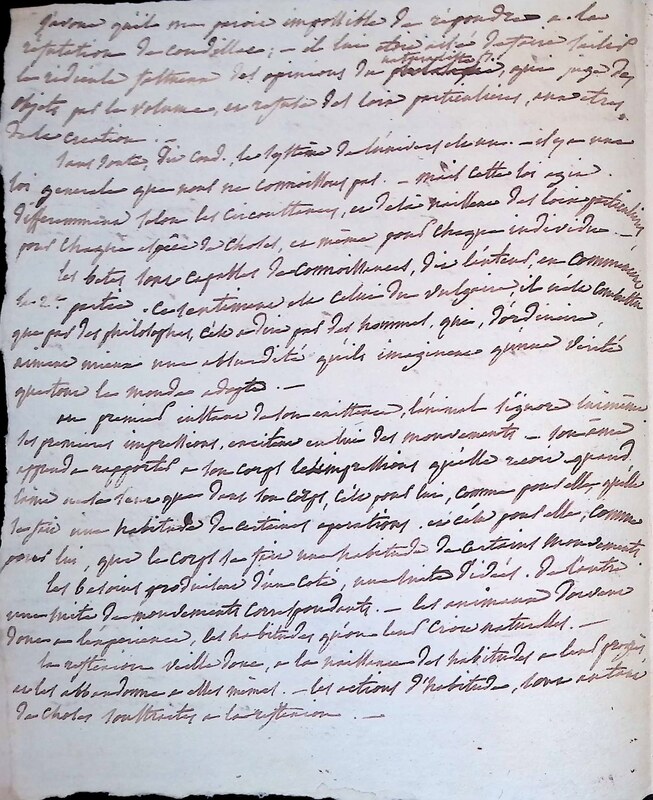 j'avoue qu'il me paroit impossible de répondre a la
refutation de Condillac; – il lui etoit aisé de faire sentir
le ridicule fastueux des opinions du naturaliste, que juge des
objets par le volume, et refuse des loix particulieres, aux etres
de la creation –
Sans doute, dit Cond., le systême de l'univers est un. – il y a une
loi generale que nous ne connoissons pas. – mais cette loi agit
differemment selon les circonstances, et de la naissent des loix particulieres
pour chaque espèce de choses, et même pour chaque individu. –
les betes sont capables de connoissances, dit l'auteur, en commencant
la 2e partie. Ce sentiment est celui du vulgaire il n'est combattu
que par des philosophes, c'est a dire par des hommes, qui, d'ordinaire,
aiment mieux une absurdité qu'ils imaginent qu'une verité
que tout le monde adopte. –
au premier instant de son existence, l'animal
les premieres impressions, excitent en lui des mouvements – son ame
apprend a rapporter a son corps les impressions qu'elle recoit quand
l'ame ne se sent que dans son corps, c'est pour lui, comme pour elle, qu'elle
se fait une habitude de certaines operations. et c'est pour elle, comme
pour lui, que le corps se fait une habitude de certains mouvements.
les besoins produisent d'un coté, une suite d'idées. de l'autre
une suite de mouvements correspondants. – les animaux doivent
donc a l'experience, les habitudes qu'on leur croit naturelles. –
la reflexion veille donc, a la naissance des habitudes a leurs progrès,
et les abandonne a elles mêmes. – les actions d'habitude, sont autant
de choses soustraites a la reflexion. –